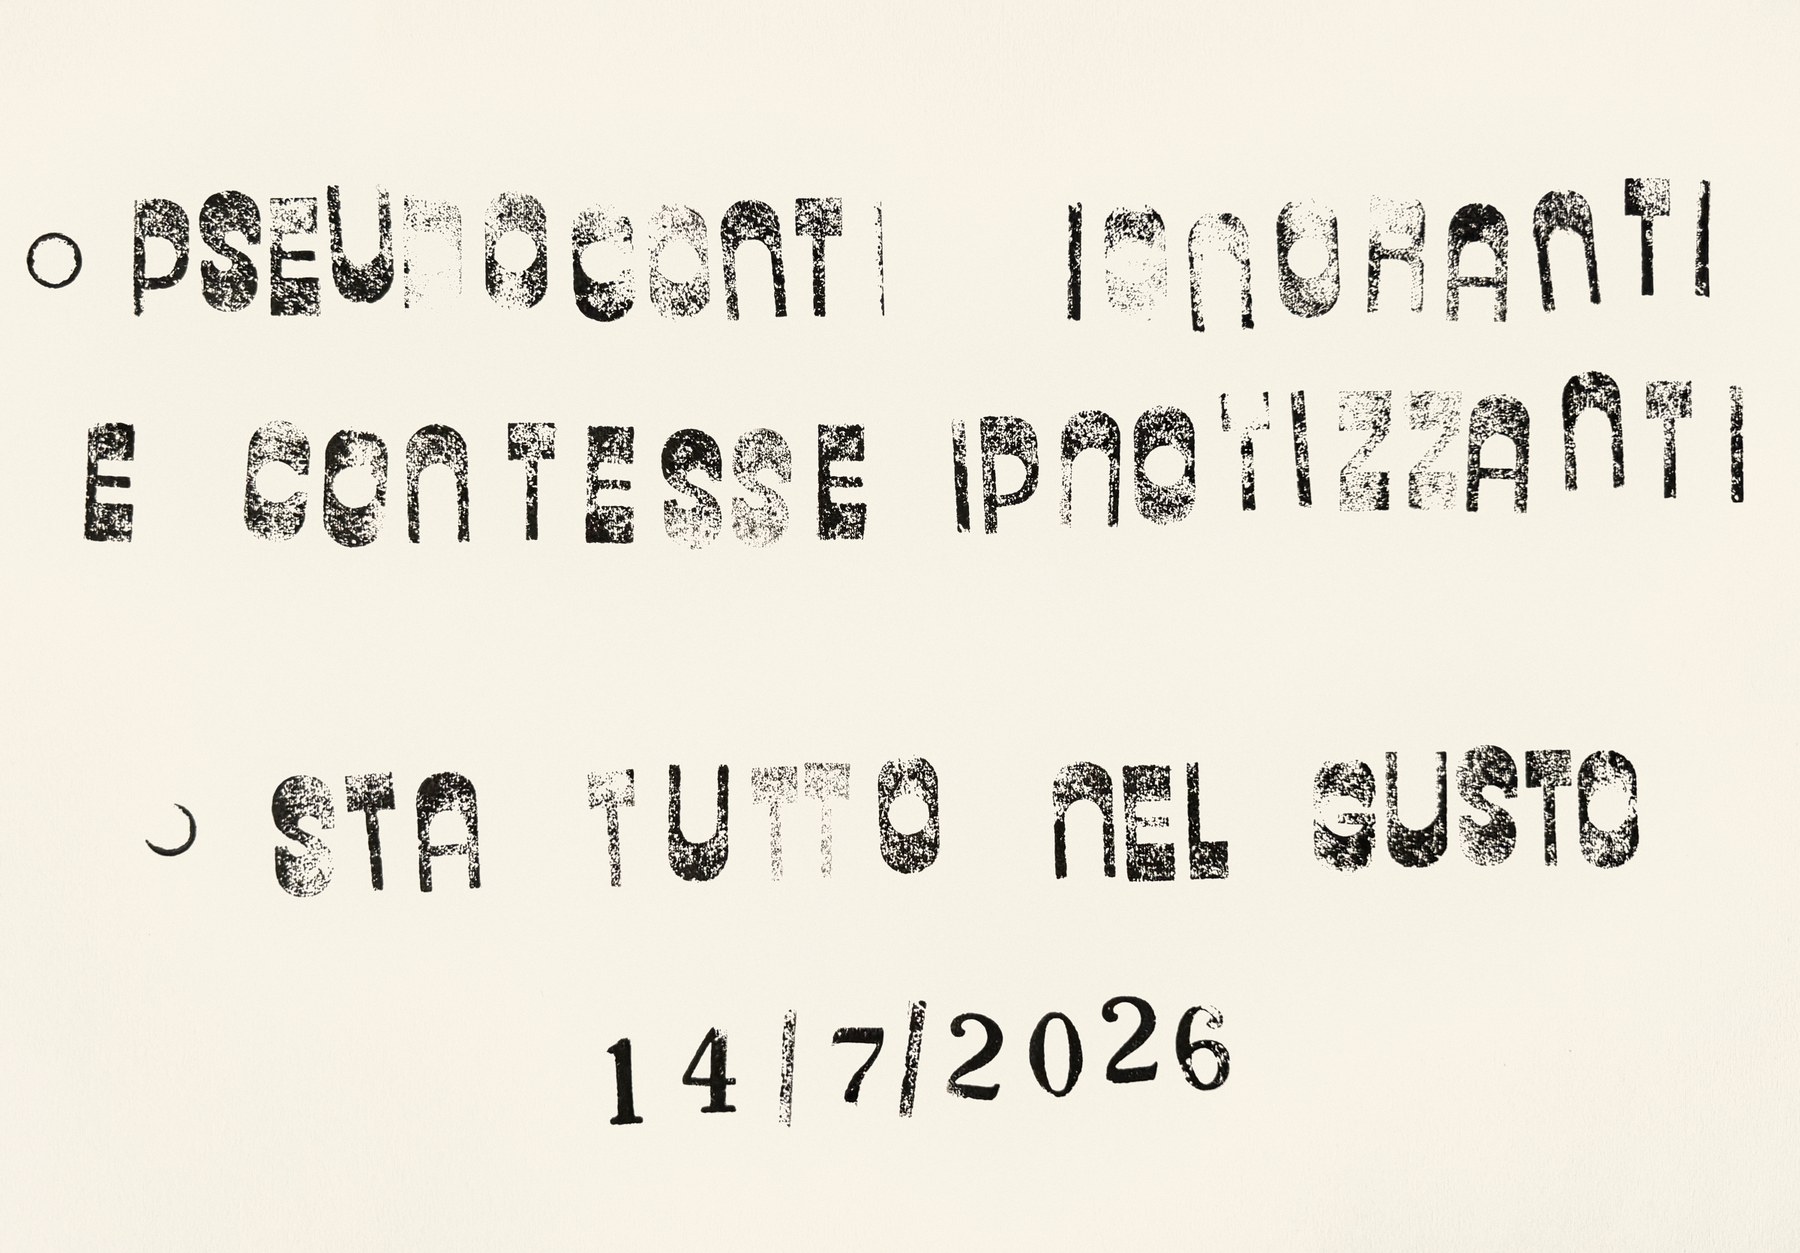 PSEUDOCONTI IGNORANTI
E CONTESSE IPNOTIZZANTI
STA TUTTO NEL GUSTO
14/7/2026